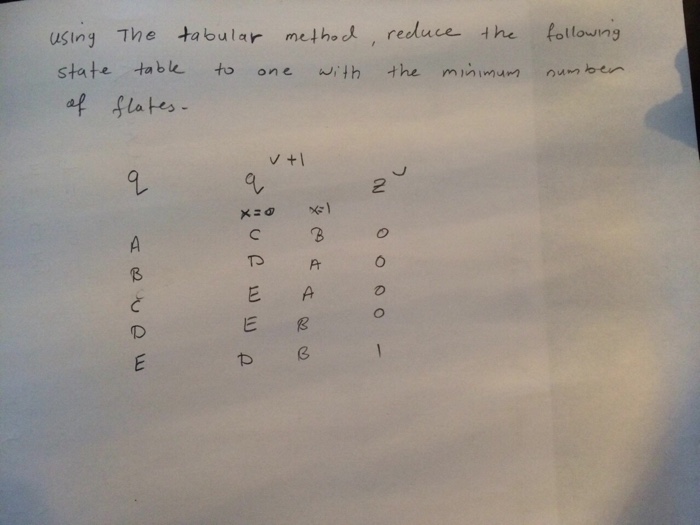 using The tabular method, reduce the following
state table to one with the minimum number
of flates.
q q v+1 z v
x=0 x=1
A C B 0
B D A 0
C E A 0
D E B 0
E D B 1